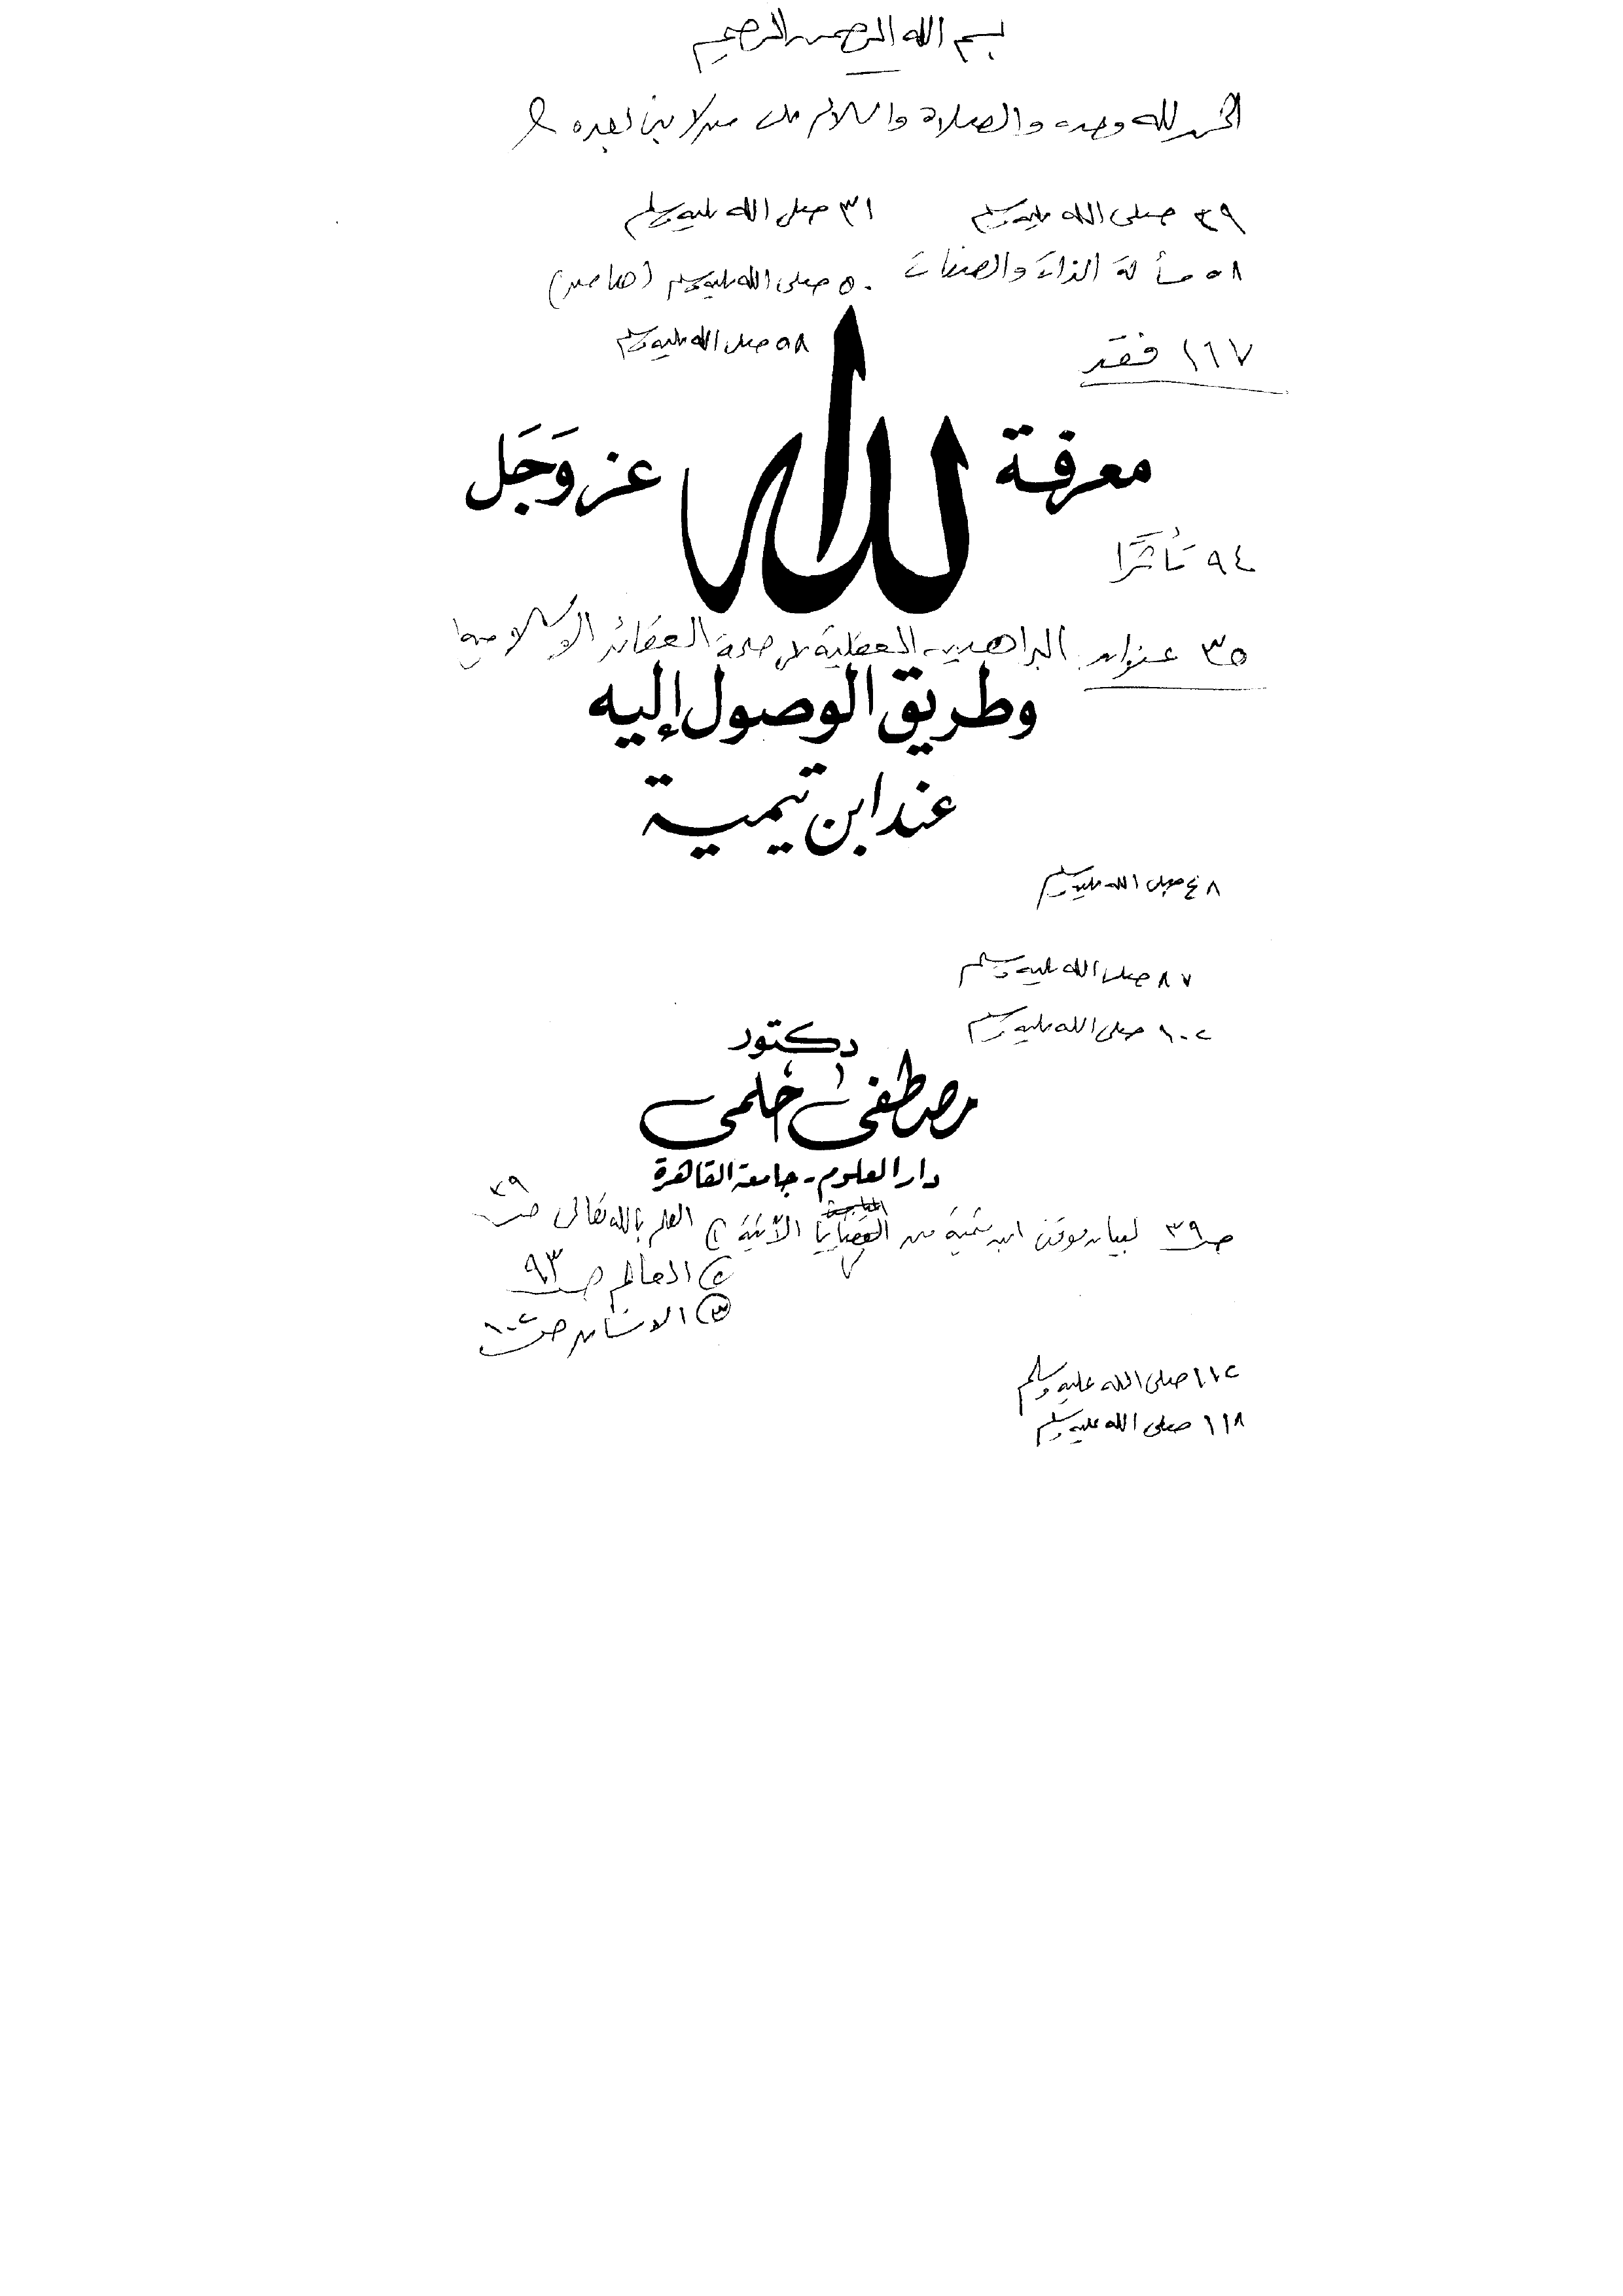 بسم الله الرحمن الرحيم
الحمد لله وحده والصلاة والسلام على من لا نبي بعده
٣٩ صلى الله عليه وسلم ٣١ صلى الله عليه وسلم
٥٨ مسألة الذات والصفات ٥٠ صلى الله عليه وسلم (هامش)
١١٧ فقد ٥٨ صلى الله عليه وسلم
معرفة الله عز وَجَل
٩٤ تأثرًا
٣٥ عنوان البراهين العقلية على صحة العقائد الإسلامية
وطريق الوصول إليه
عند ابن تيمية
٤٨ صلى الله عليه وسلم
٨٧ صلى الله عليه وسلم
١٠٢ صلى الله عليه وسلم
دكتور
مصطفى حلمى
دار العلوم - جامعة القاهرة
ص٣٩ لبيان موقف ابن تيمية من القضايا الآتية ١) العلم بالله تعالى ص٣٩
٢ العالم ص٩٣
٣ الانسان ص١٠٢
١١٢ صلى الله عليه وسلم
١١٨ صلى الله عليه وسلم